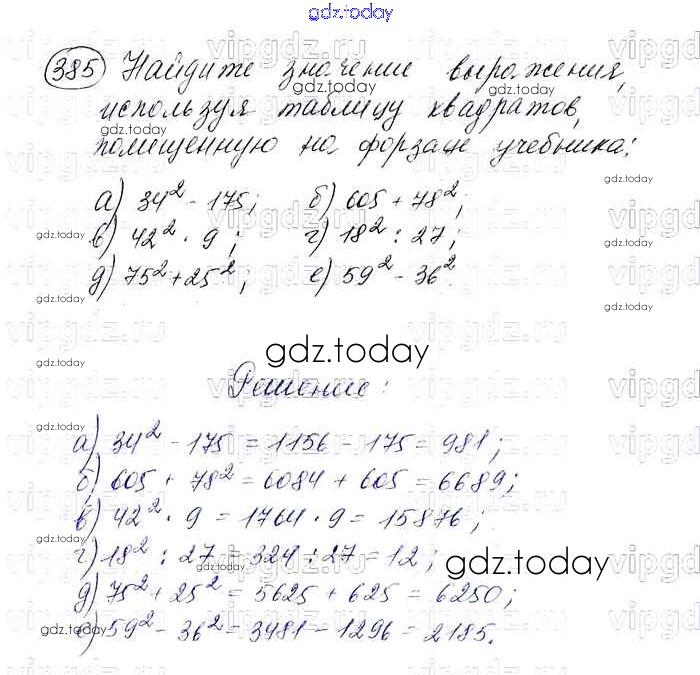 gdz.today
385 Найдите значение выражения,
используя таблицу квадратов,
gdz.today
помещённую на форзаце учебника:
а) 34² - 175; б) 605 + 78²;
в) 42² · 9; г) 18² : 27;
д) 75² + 25²; е) 59² - 36²
gdz.today
Решение:
а) 34² - 175 = 1156 - 175 = 981;
б) 605 + 78² = 6084 + 605 = 6689;
в) 42² · 9 = 1764 · 9 = 15876;
г) 18² : 27 = 324 : 27 = 12;
gdz.today
д) 75² + 25² = 5625 + 625 = 6250;
е) 59² - 36² = 3481 - 1296 = 2185.